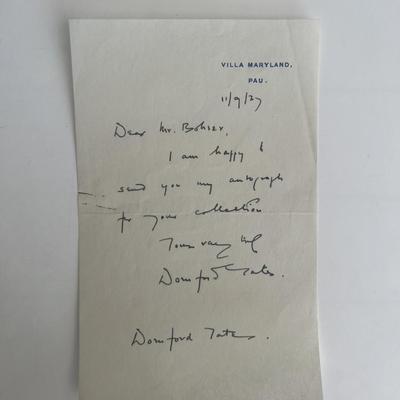 VILLA MARYLAND,
PAU.
11/9/27
Dear Mr. Bohser,
I am happy to
send you my autograph
for your collection
Yours very truly
Dornford Yates.
Dornford Yates.